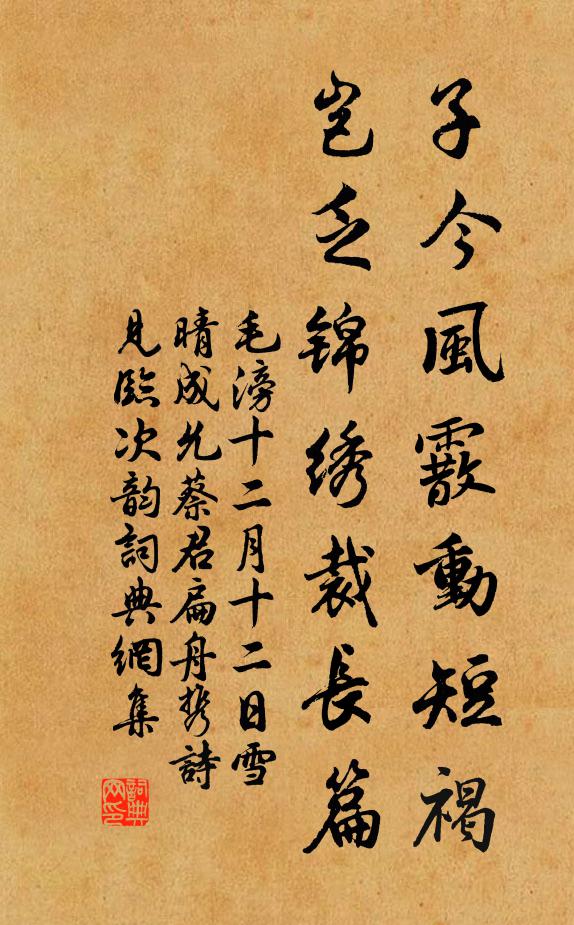 子今風霰動短褐
岂乏锦绣裁長篇
毛滂十二月十二日雪
晴成允蔡君扁舟携詩
見臨次韵詞典網集
詞典網印